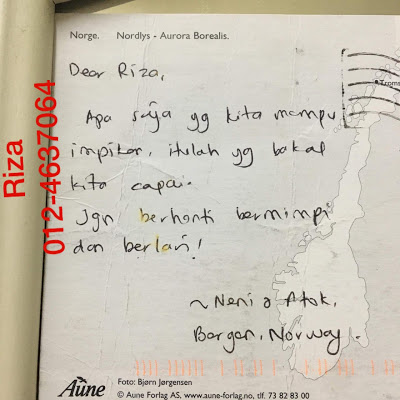 Norge. Nordlys - Aurora Borealis.
Dear Riza,
Apa saja yg kita mampu
impikan, itulah yg bakal
kita capai.
Jgn berhenti bermimpi
dan berlari!
~ Neni & Atok,
Bergen, Norway.
Riza
012-4637064
Troms
Aune
Foto: Bjørn Jørgensen
© Aune Forlag AS, www.aune-forlag.no, tlf. 73 82 83 00